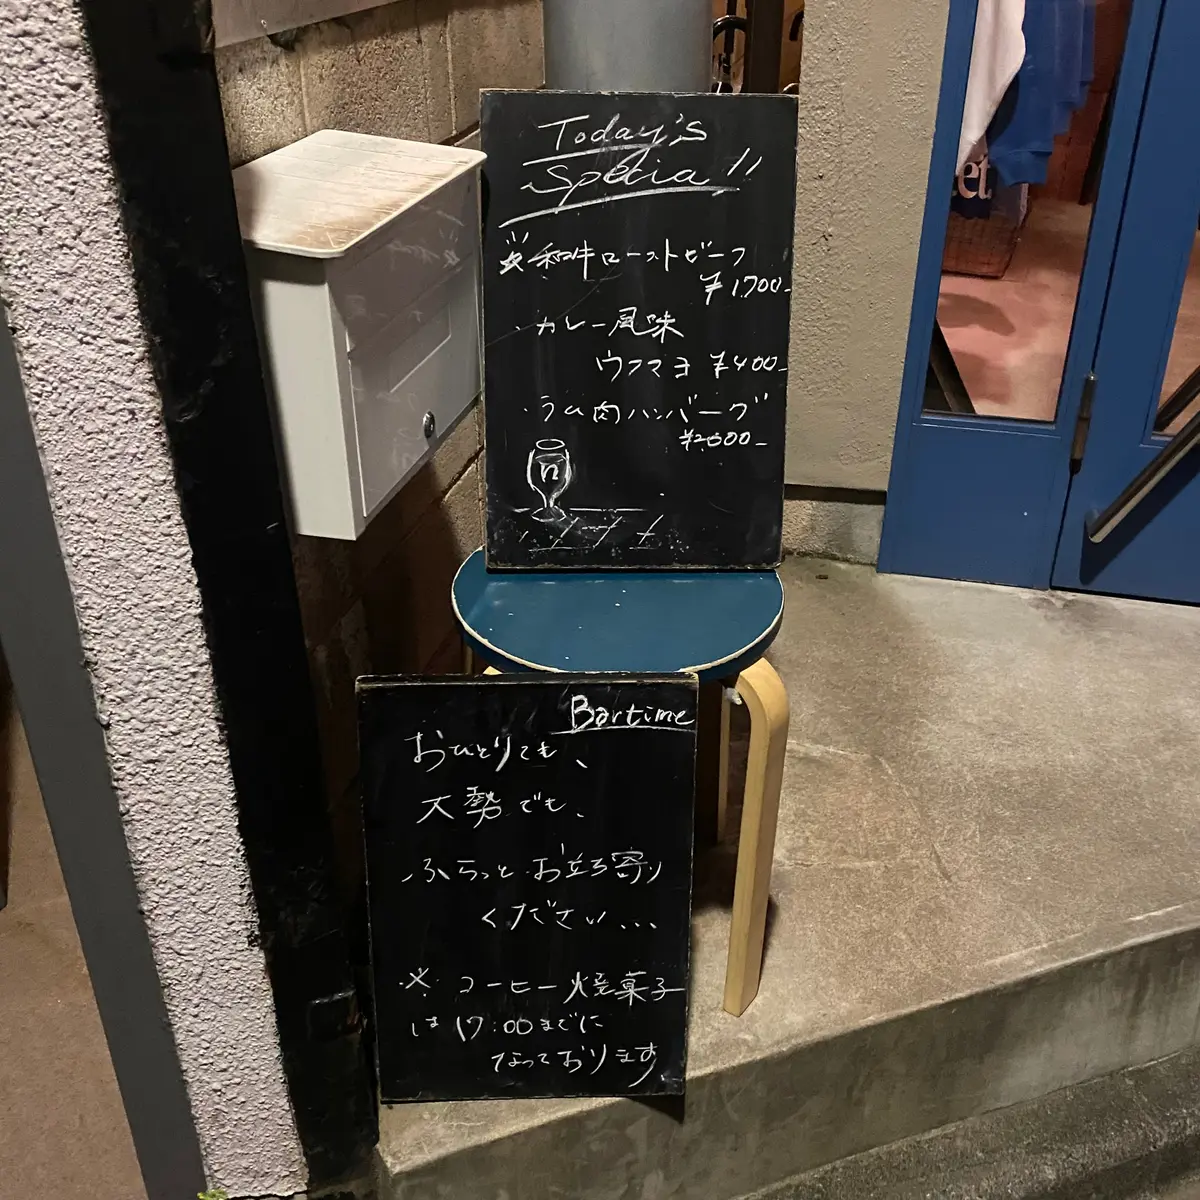 Today's
Special!!
和牛ローストビーフ
¥1,700-
・カレー風味
ウフマヨ ¥400-
・ラム肉ハンバーグ
n
Bartime
おひとりでも、
大勢でも、
ふらっとお立ち寄り
ください...
※コーヒー焼菓子
は17:00までに
なっております